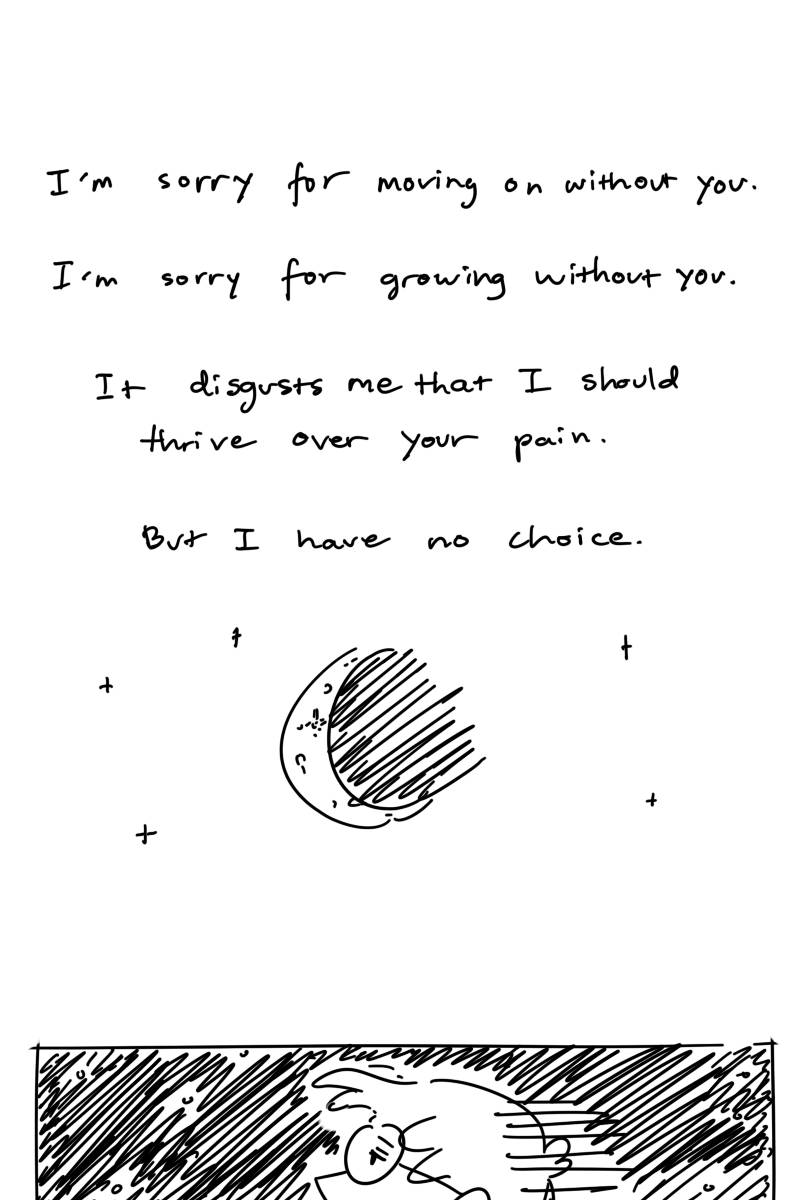 I'm sorry for moving on without you.
I'm sorry for growing without you.
It disgusts me that I should
thrive over your pain.
But I have no choice.